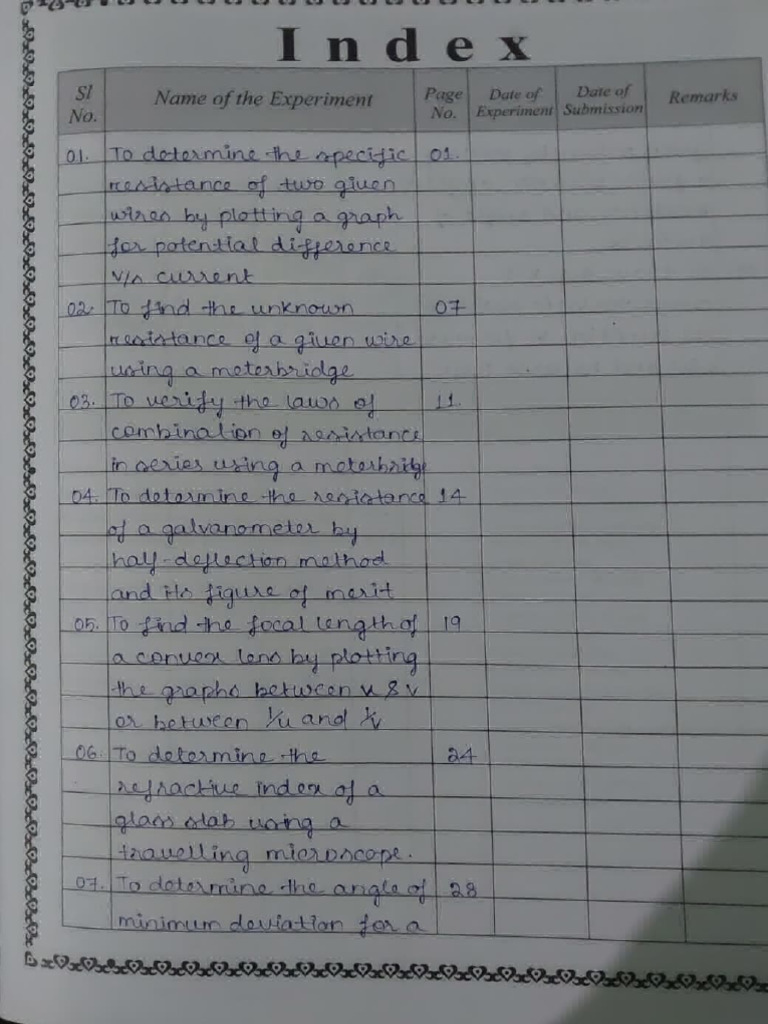 Index
Sl No. Name of the Experiment Page No. Date of Experiment Date of Submission Remarks
01. To determine the specific 01.
resistance of two given
wires by plotting a graph
for potential difference
v/s current
02. To find the unknown 07
resistance of a given wire
using a meterbridge
03. To verify the laws of 11.
combination of resistance
in series using a meterbridge
04. To determine the resistance 14
of a galvanometer by
half-deflection method
and its figure of merit
05. To find the focal length of 19
a convex lens by plotting
the graphs between u & v
or between 1/u and 1/v
06. To determine the 24
refractive index of a
glass slab using a
travelling microscope.
07. To determine the angle of 28
minimum deviation for a